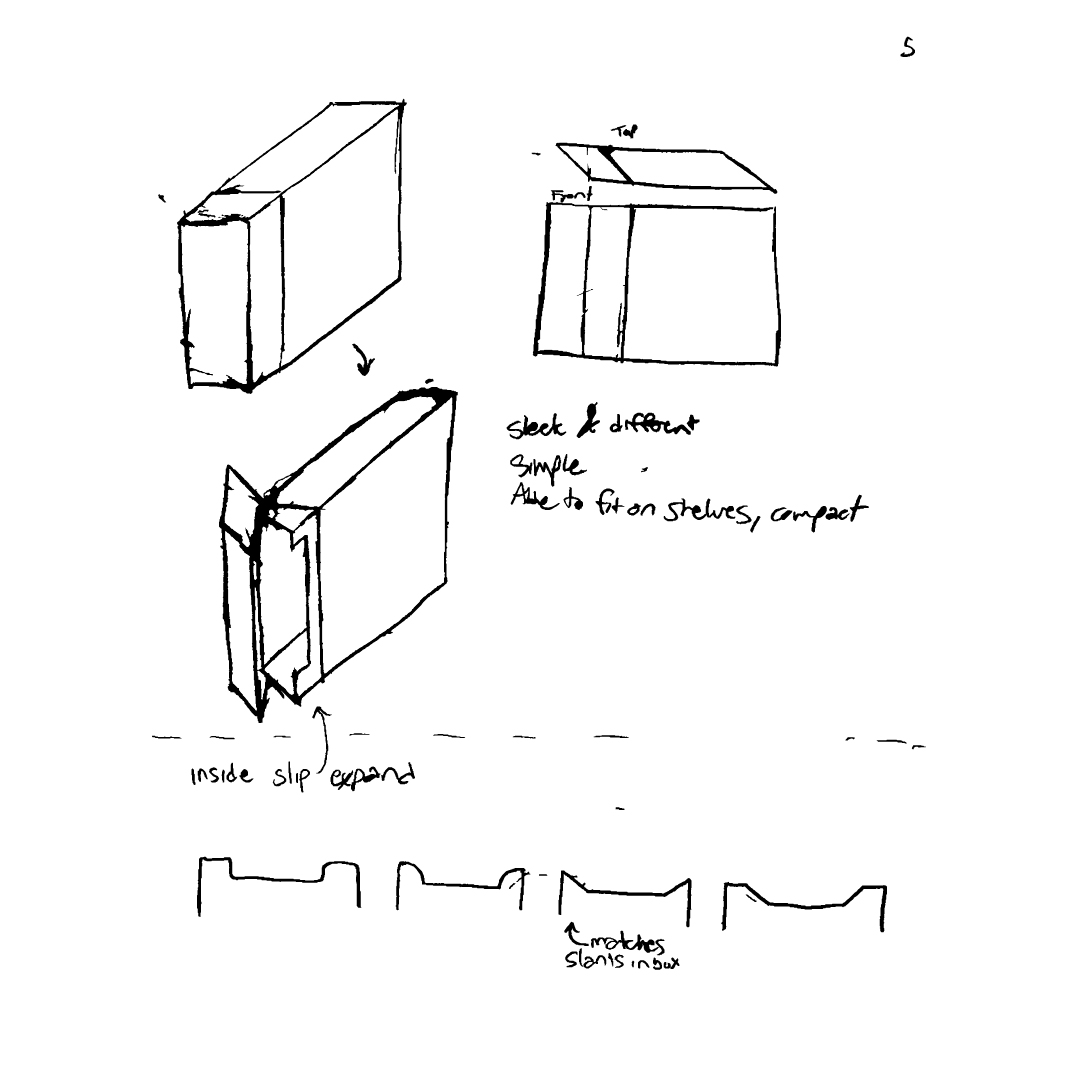 5
Top
Front
Sleek & different
Simple
Able to fit on shelves, compact
inside slip expand
matches
slants in box